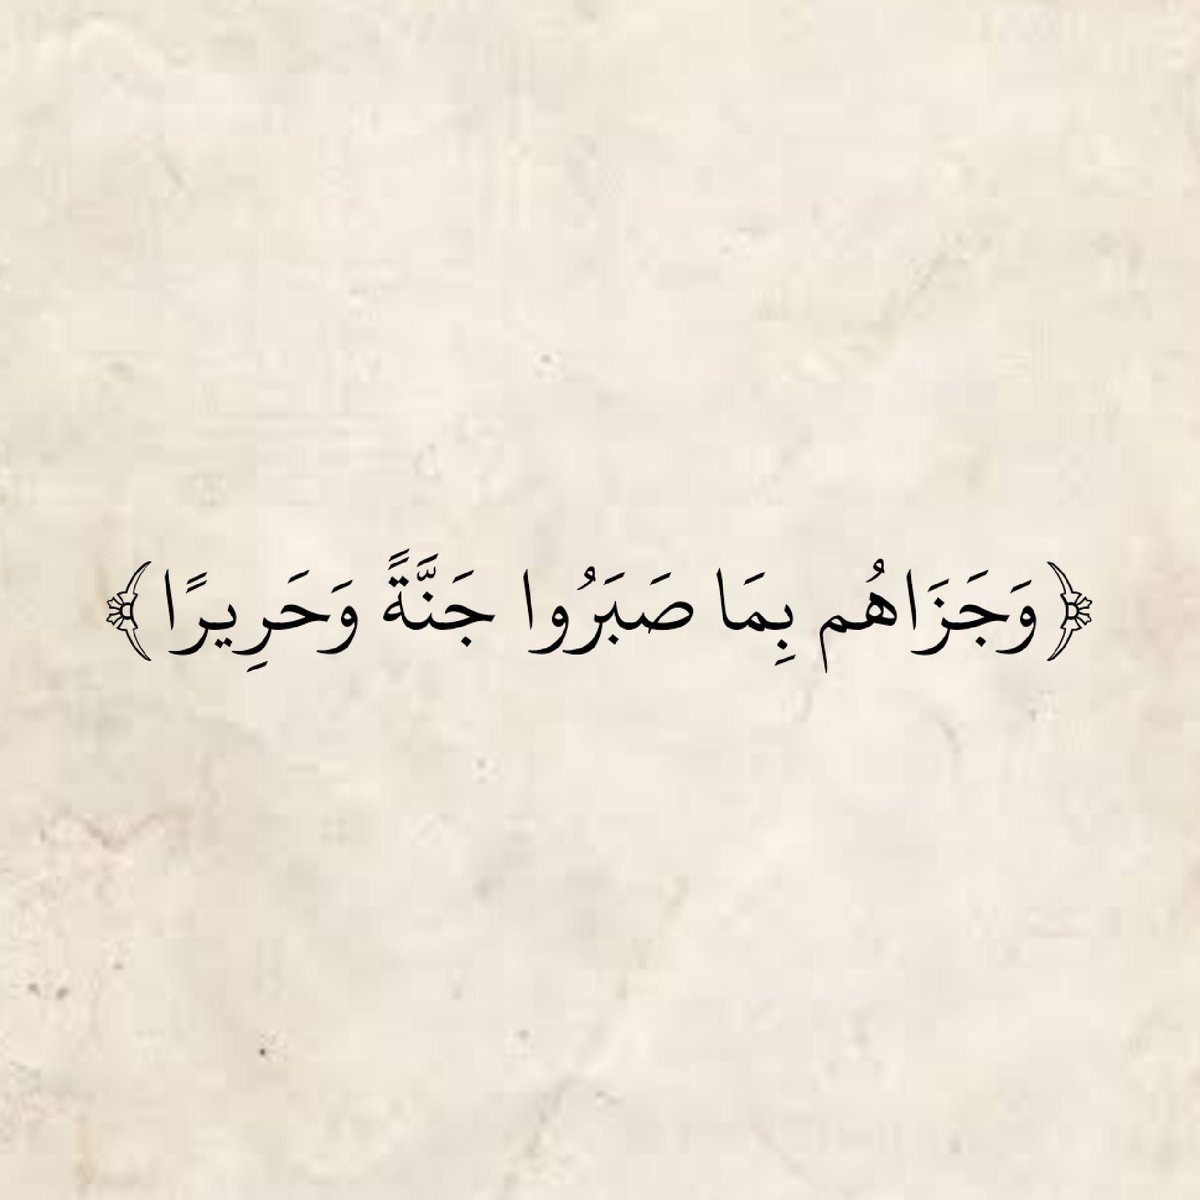 ﴿وَجَزَاهُم بِمَا صَبَرُوا جَنَّةً وَحَرِيرًا﴾